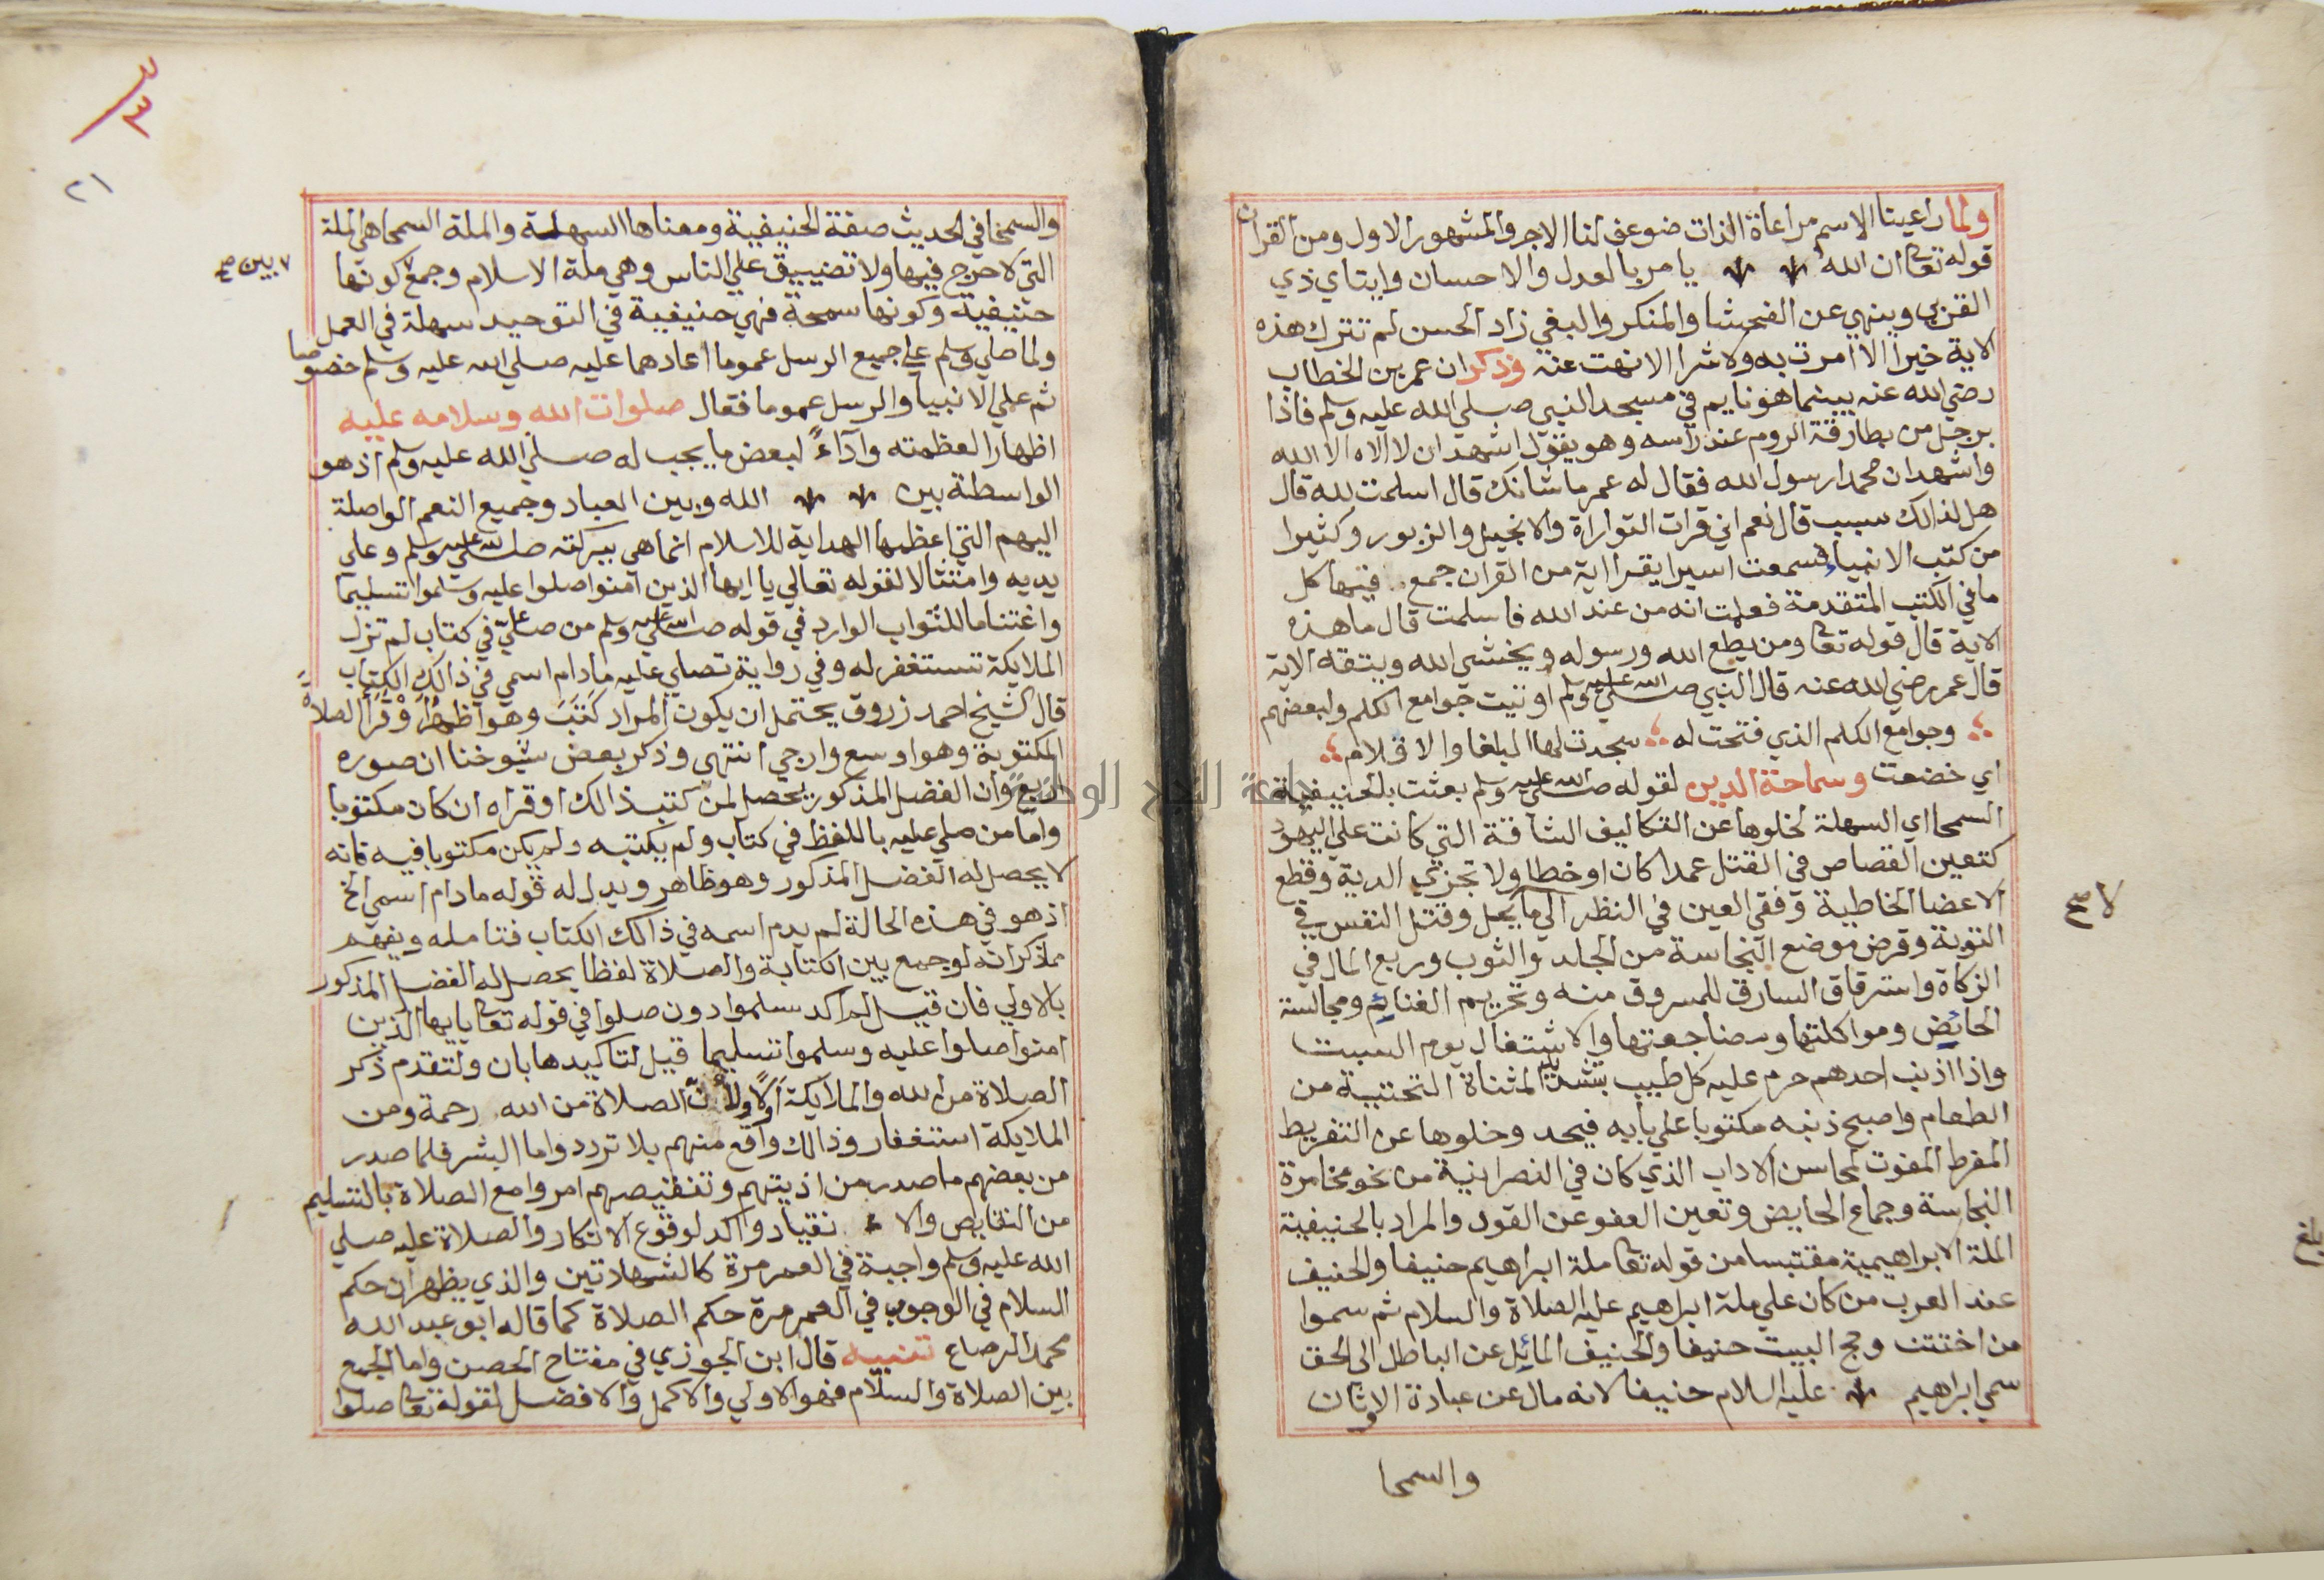 ولما راعينا الاسم مراعاة الذات ضوعف لنا الاجر والمشهور الاول ومن القران
قوله تعا ان الله يامر بالعدل والاحسان وايتاي ذي
القربي وينهي عن الفحشا والمنكر والبغي زاد الحسن لم تترك هذه
الاية خيرا الا امرت به ولا شرا الا نهت عنه وذكر ان عمر بن الخطاب
رضي الله عنه بينما هو نايم في مسجد النبي صلي الله عليه وسلم فاذا
برجل من بطارقة الروم عند راسه وهو يقول اشهد ان لا الاه الا الله
واشهد ان محمدا رسول الله فقال له عمر ما شانك قال اسلمت لله قال
هل لذالك سبب قال نعم اني قرات التواراة والانجيل والزبور وكثيرا
من كتب الانبياء فسمعت اسيرا يقرا اية من القران جمع فيها كل
ما في الكتب المتقدمة فعلمت انه من عند الله فاسلمت قال ما هذه
الاية قال قوله تعا ومن يطع الله ورسوله ويخشي الله ويتقه الاية
قال عمر رضي الله عنه قال النبي صلي الله عليه وسلم اوتيت جوامع الكلم ولبعضهم
وجوامع الكلم الذي فتحت له سجدت لها البلغا والاقلام
اي خضعت وسماحة الدين لقوله صلي الله عليه وسلم بعثت بالحنيفية
السمحا اي السهلة لخلوها عن التكاليف الشاقة التي كانت علي اليهود
كتعين القصاص في القتل عمدا كان او خطا ولا تجزي الدية وقطع
الاعضا الخاطية وفقي العين في النظر الي ما يحل وقتل النفس في
التوبة وقرض موضع النجاسة من الجلد والثوب وربع المال في
الزكاة واسترقاق السارق للمسروق منه وتحريم الغنايم ومجالسة
الحايض ومواكلتها ومضاجعتها والاشتغال يوم السبت
واذا اذنب احدهم حرم عليه كل طيب بتشديد المثناة التحتية من
الطعام واصبح ذنبه مكتوبا علي بابه فيحد وخلوها عن التفريط
المفرط المفوت لمحاسن الاداب الذي كان في النصرانية من نحو مخامرة
النجاسة وجماع الحايض وتعين العفو عن القود والمراد بالحنيفية
الملة الابراهيمية مقتبسا من قوله تعا ملة ابراهيم حنيفا والحنيف
عند العرب من كان علي ملة ابراهيم عليه الصلاة والسلام ثم سموا
من اختتن وحج البيت حنيفا والحنيف المائل عن الباطل الي الحق
سمي ابراهيم عليه السلام حنيفا لانه مال عن عبادة الاوثان
والسمحا
٢١
والسمحا في الحديث صفة الحنيفية ومعناها السهلة والملة السمحا هي الملة
التي لا حرج فيها ولا تضييق علي الناس وهي ملة الاسلام وجمع كونها
بين صح
حنيفية وكونها سمحة فهي حنيفية في التوحيد سهلة في العمل
ولما صلي وسلم علي جميع الرسل عموما اعادهما عليه صلي الله عليه وسلم خصوصا
ثم علي الانبيا والرسل عموما فقال صلوات الله وسلامه عليه
اظهارا لعظمته وآداءً لبعض ما يجب له صلي الله عليه وسلم اذ هو
الواسطة بين الله وبين العباد وجميع النعم الواصلة
اليهم التي اعظمها الهداية للاسلام انما هي ببركته صلي الله عليه وسلم وعلي
يديه وامتثالا لقوله تعالي يا ايها الذين امنوا صلوا عليه وسلموا تسليما
واغتناما للثواب الوارد في قوله صلي الله عليه وسلم من صلي علي في كتاب لم تزل
الملايكة تستغفر له وفي رواية تصلي عليه ما دام اسمي في ذالك الكتاب
قال الشيخ احمد زروق يحتمل ان يكون المراد كَتَبَ وهو اظهر او قرأ الصلاة
المكتوبة وهو اوسع وارجي انتهي وذكر بعض شيوخنا ان صوره
اربع وان الفضل المذكور يحصل لمن كتب ذالك او قراه ان كان مكتوبا
واما من صلي عليه باللفظ في كتاب ولم يكتبه ولم يكن مكتوبا فيه فانه
لا يحصل له الفضل المذكور وهو ظاهر ويدل له قوله ما دام اسمي الخ
اذ هو في هذه الحالة لم يدم اسمه في ذالك الكتاب فتامله ويفهم
مما ذكر انه لو جمع بين الكتابة والصلاة لفظا يحصل له الفضل المذكور
بالاولي فان قيل لم اكد سلموا دون صلوا في قوله تعا يا يها الذين
امنوا صلوا عليه وسلموا تسليما قيل لتاكيدها بان ولتقدم ذكر
الصلاة من الله والملايكة اولا ولأنّ الصلاة من الله رحمة ومن
الملايكة استغفار وذالك واقع منهم بلا تردد واما البشر فلما صدر
من بعضهم ما صدر من اذيتهم وتنقيصهم امروا مع الصلاة بالتسليم
من النقايص والا نقياد واكد لوقوع الانكار والصلاة عليه صلي
الله عليه وسلم واجبة في العمر مرة كالشهادتين والذي يظهر ان حكم
السلام في الوجوب في العمر مرة حكم الصلاة كما قاله ابو عبد الله
محمد الرصاع تنبيه قال ابن الجوزي في مفتاح الحصن واما الجمع
بين الصلاة والسلام فهو الاولي والاكمل والافضل لقوله تعا صلوا